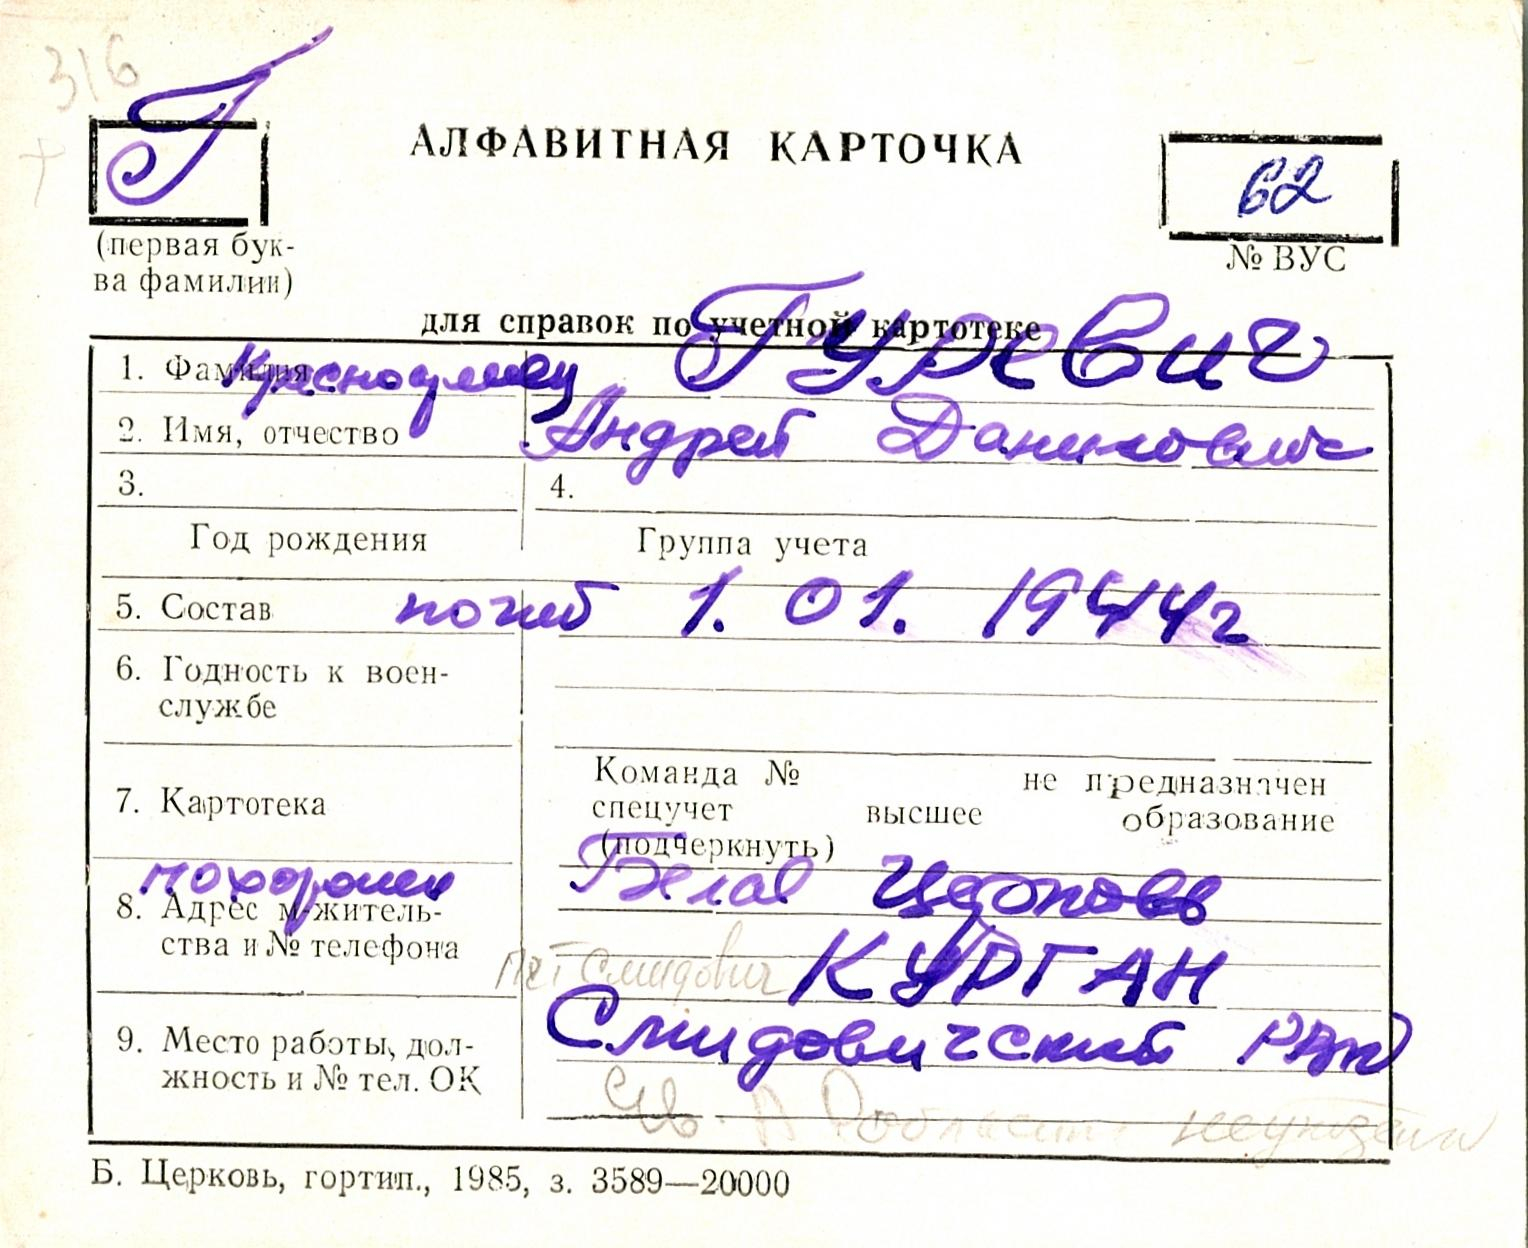 316
Г
АЛФАВИТНАЯ КАРТОЧКА
62
(первая бук-
ва фамилии)
№ ВУС
для справок по учетной картотеке
1. Фамилия Красноармеец Гуревич
2. Имя, отчество Андрей Данилович
3. 4.
Год рождения Группа учета
5. Состав погиб 1. 01. 1944г
6. Годность к воен-
службе
7. Картотека
Команда № не предназначен
спецучет высшее образование
(подчеркнуть)
похоронен Белая Церковь
8. Адрес м-житель-
ства и № телефона
пгт Смидович КУРГАН
9. Место работы, дол-
жность и № тел. ОК
Смидовичский РВК
Б. Церковь, гортип., 1985, з. 3589—20000